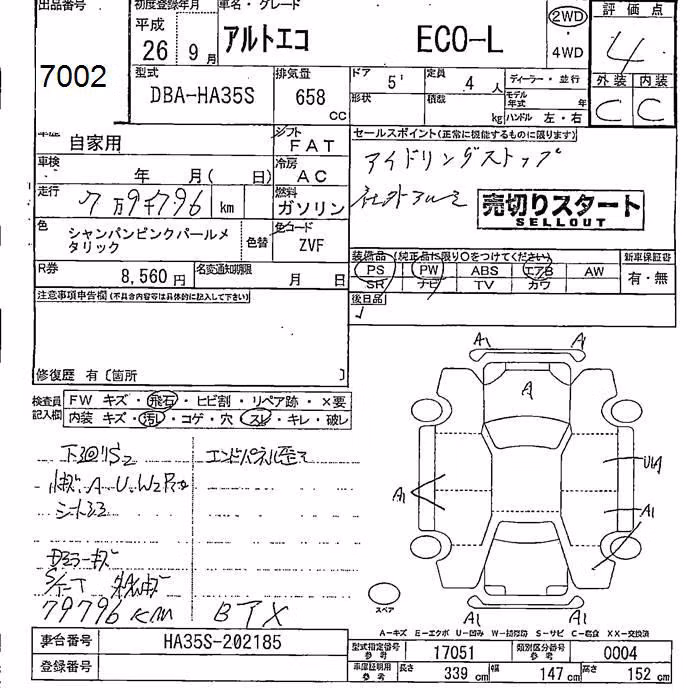 出品番号
7002
初度登録年月
平成
26 9月
車名・グレード
アルトエコ ECO-L
2WD
・
4WD
評価点
4
外装 内装
C C
型式
DBA-HA35S
排気量
658 cc
ドア 5
定員 4人
形状
積載 kg
ディーラー・並行
モデル年式 年
ハンドル 左・右
車歴 自家用
シフト FAT
車検 年 月( 日)
冷房 AC
走行 7万9千796 km
燃料 ガソリン
色 シャンパンピンクパールメタリック
色替
色コード ZVF
R券 8,560円
名変通知期限 月 日
セールスポイント(正常に機能するものに限ります)
アイドリングストップ
社外アルミ
売切りスタート
SELLOUT
装備品 (純正品に限り○をつけてください)
PS PW ABS エアB AW
SR ナビ TV カワ
新車保証書
有・無
後日品
注意事項申告欄(不具合内容等は具体的に記入して下さい)
修復歴 有〔箇所 〕
検査員記入欄
FW キズ・飛石・ヒビ割・リペア跡・×要
内装 キズ・汚れ・コゲ・穴・スレ・キレ・破レ
下回りS2
エンドパネル歪み
小キズ A U W2
Dミラーキズ
79796 KM
A1 A1
A
A1
U1A
A1
A1 A1
スペア
A-キズ E-エクボ U-凹み W-補修跡 S-サビ C-腐食 XX-交換済
車台番号 HA35S-202185
登録番号
型式指定番号 参考 17051
類別区分番号 参考 0004
車庫証明用 参考 長さ 339 cm 幅 147 cm 高さ 152 cm